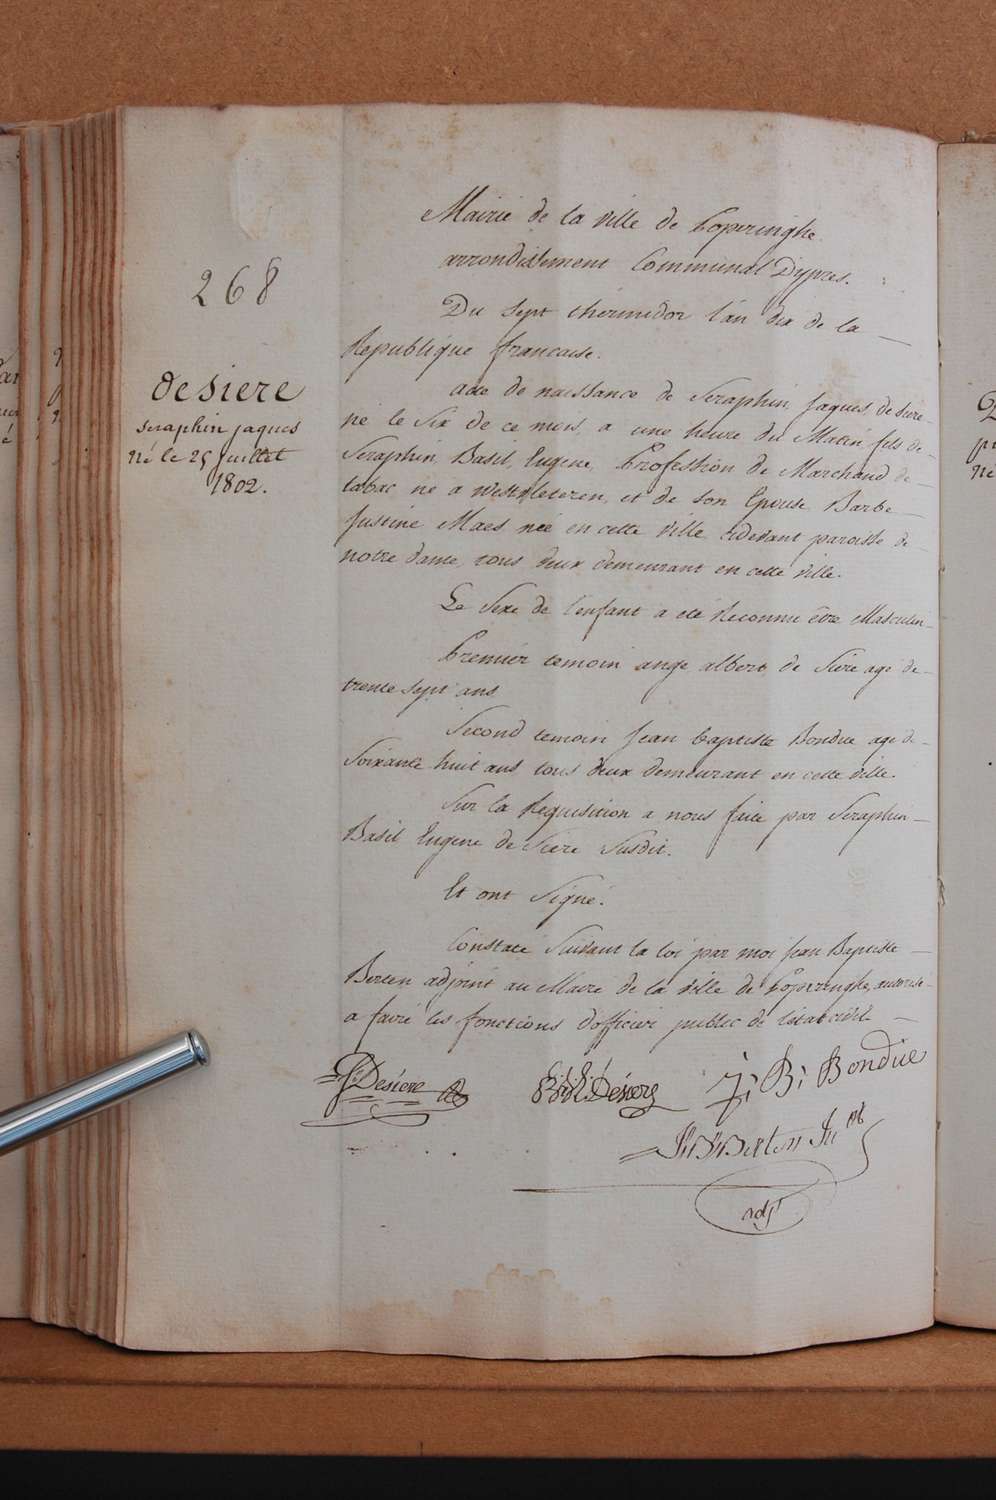 268
desiere
seraphin jaques
Né le 25 Juillet
1802.
Mairie de la ville de Poperinghe
arrondissement Communal D'ypres.
Du Sept thermidor l'an dix de la
Republique francaise.
acte de naissance de Seraphin, Jaques, de siere
né le Six de ce mois, a une heure du Matin, fils de
Seraphin, Basil, Eugene, Profession de Marchand de
tabac né a westvleteren, et de son Epouse Barbe
Justine Maes née en cette ville cidevant paroisse de
notre dame, tous deux demeurant en cette ville.
Le Sexe de l'enfant a eté Reconnu être Masculin
Premier temoin ange albert de Siere agé de
trente sept ans
Second temoin Jean baptiste Bondue agé de
Soixante huit ans tous deux demeurant en cette ville.
Sur la Requisition a nous faite par Seraphin
Basil Eugene de Siere Susdit.
Et ont Signé.
Constaté Suivant la loi par moi Jean Baptiste
Berten adjoint au Maire de la ville de Poperinghe, autorisé
a faire les fonctions d'officier public de l'etat civil
Desiere
Desiere
J: B: Bondue
J: B: Berten
adjt